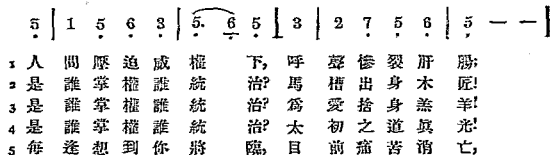 5 | 1 5 6 3 | 5. 6 5 | 3 | 2 7 5 6 | 5 — — ‖
1 人間壓迫威權下,呼聲慘裂肝腸;
2 是誰掌權誰統治?馬槽出身木匠!
3 是誰掌權誰統治?爲愛捨身羔羊!
4 是誰掌權誰統治?太初之道眞光!
5 每逢想到你將臨,目前痛苦消亡,